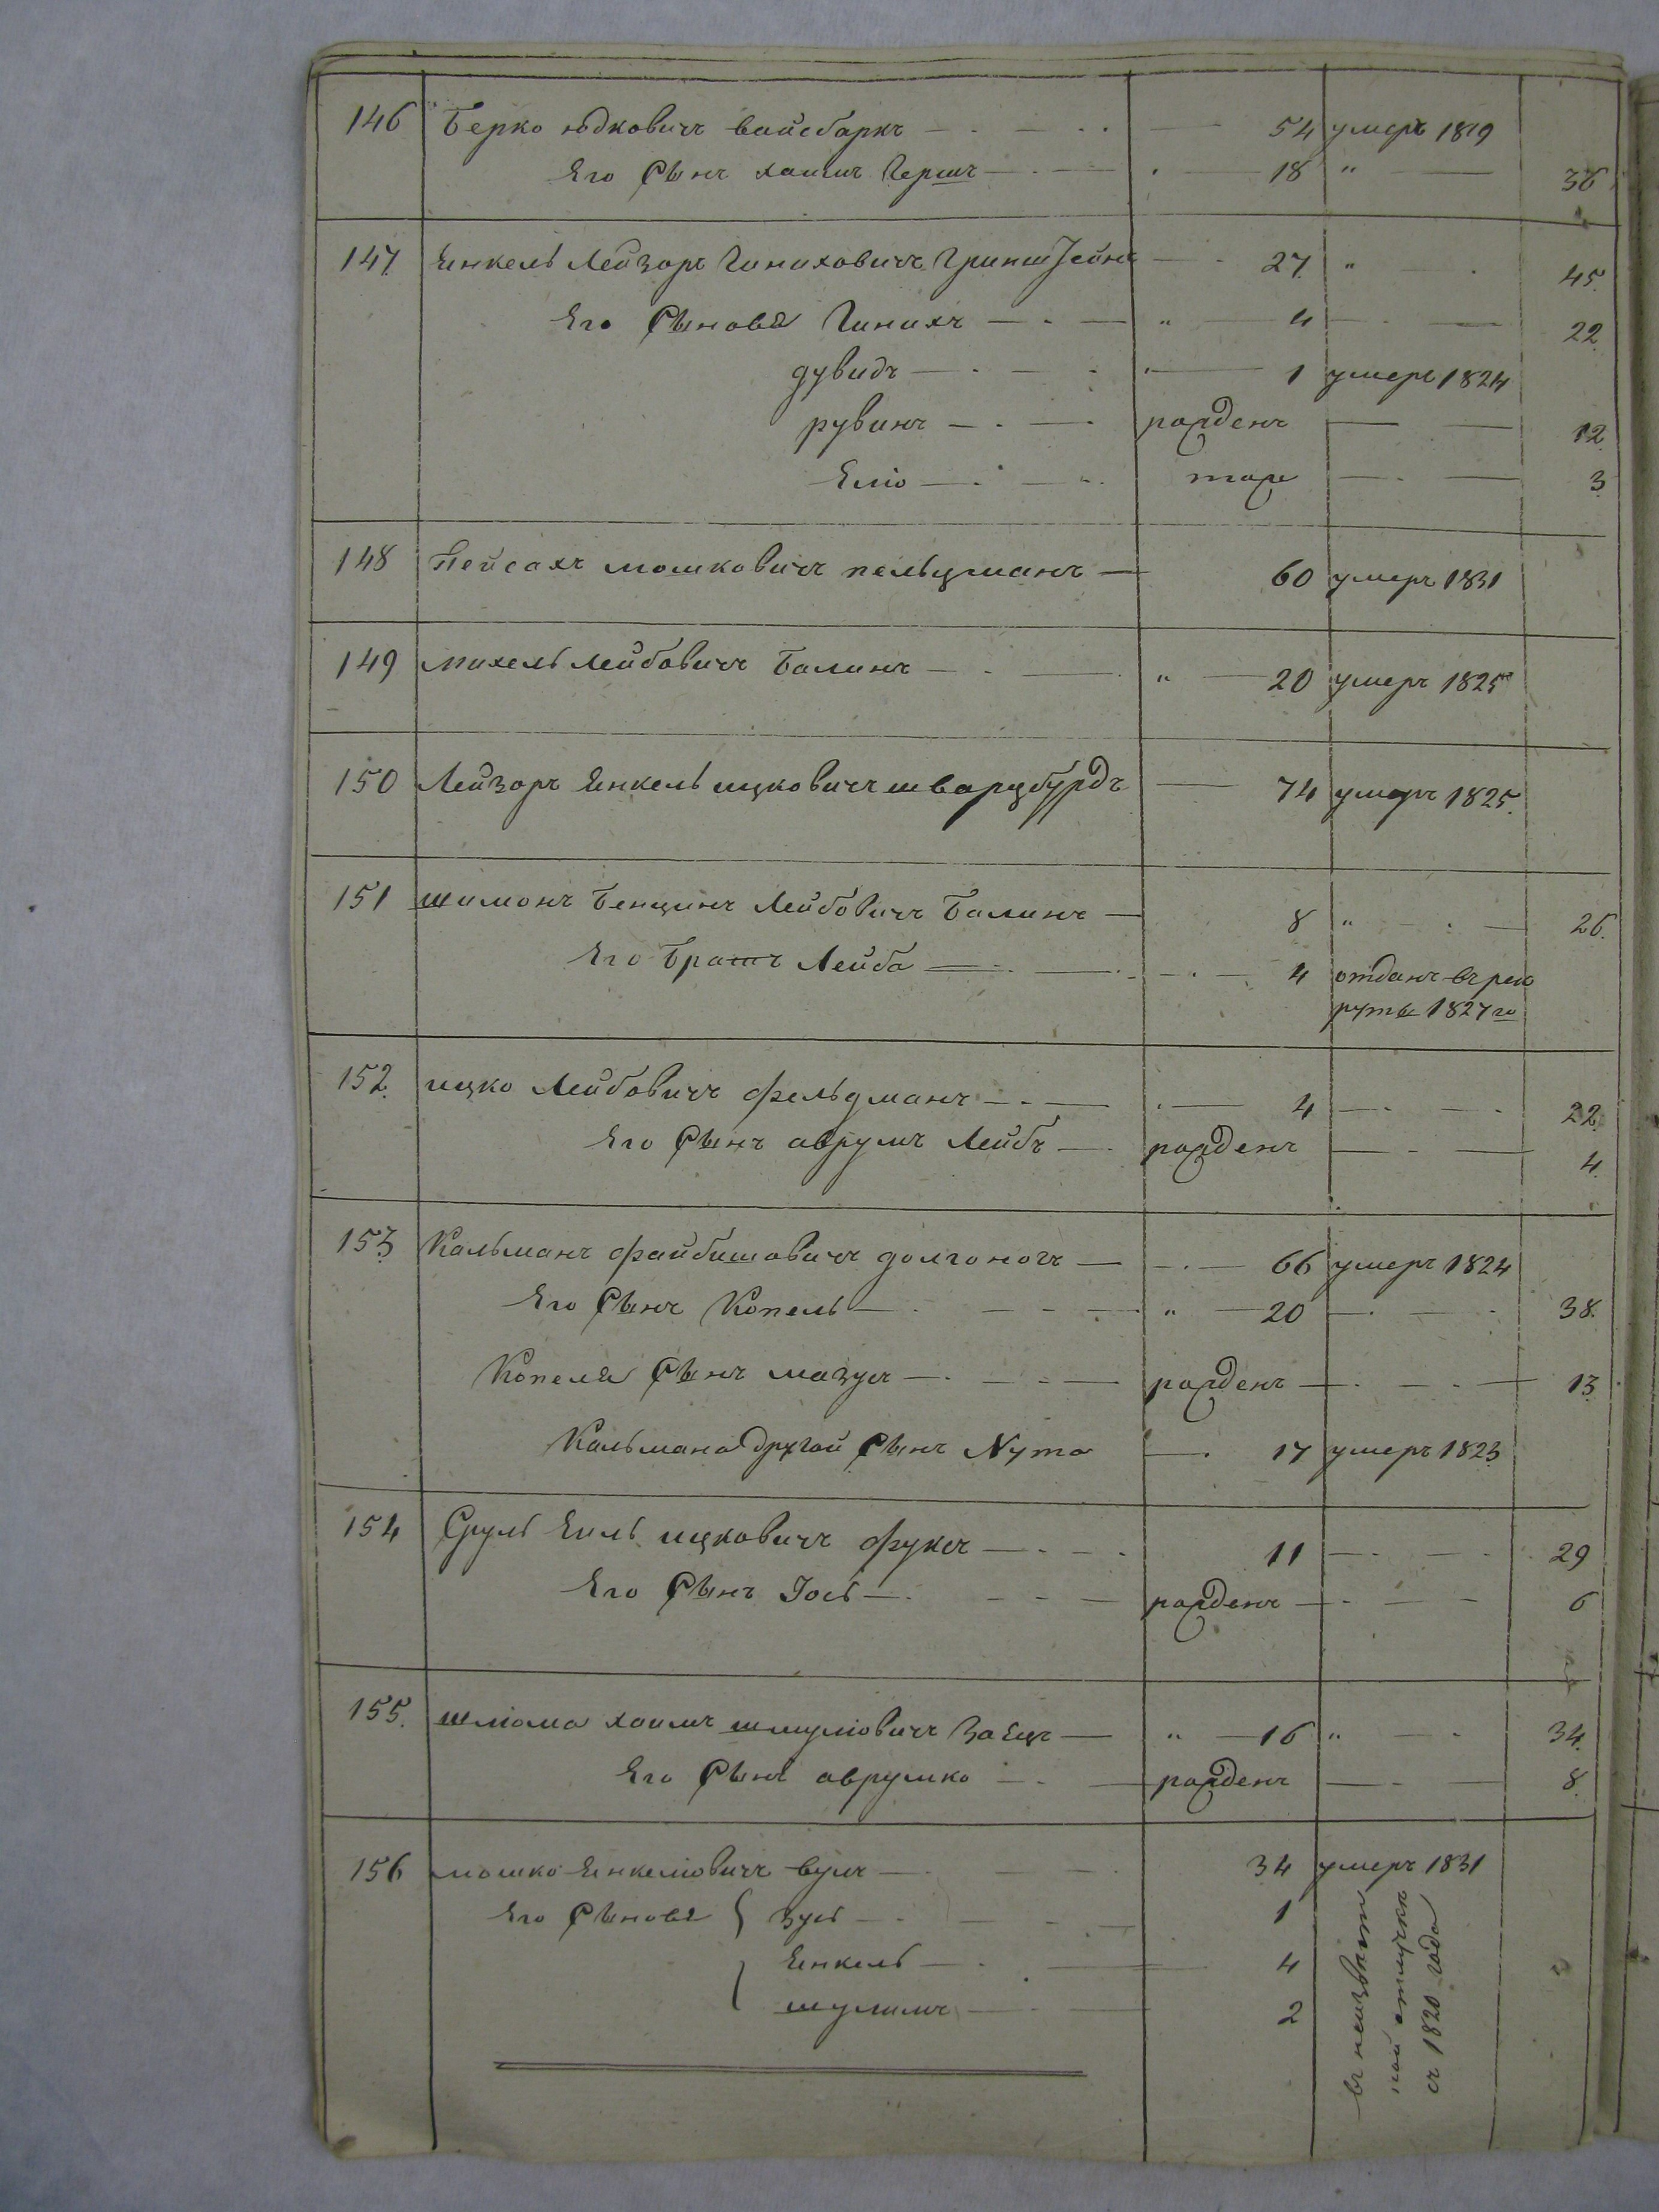 146 Берко юдковичъ вайсбаркъ — 54 умеръ 1819
Его Сынъ хаимъ Гершъ — 18 " — 36
147 Янкель Лейзоръ Гиниховичъ Гринштейнъ — 27 " — 45
Его Сыновя Гинихъ — " 4 — 22
дувидъ — 1 умеръ 1824
рувинъ — рожденъ — 12
Еліо — тоже — 3
148 Пейсахъ мошковичъ пельцманъ — 60 умеръ 1831
149 михель Лейбовичъ Балинъ — " 20 умеръ 1825
150 Лейзоръ Янкель ицковичъ шварцбурдъ — 74 умеръ 1825
151 шимонъ Бенцинъ Лейбовичъ Балинъ — 8 " — 26
Его братъ Лейба — 4 отданъ въ рек
руты 1827 го
152 ицко Лейбовичъ фельдманъ — 4 — 22
Его Сынъ аврумъ Лейбъ — рожденъ — 4
153 Кальманъ файбишовичъ долгоногъ — 66 умеръ 1824
Его Сынъ Копель — " 20 — 38
Копеля Сынъ мазусъ — рожденъ — 13
Кальмана другой Сынъ Nута — 17 умеръ 1823
154 Сруль Еиль ицковичъ фуксъ — 11 — 29
Его Сынъ Іось — рожденъ — 6
155 шліома хаимъ шмуліовичъ Заецъ — " 16 " — 34
Его Сынъ аврумко — рожденъ — 8
156 мошко Янкеліовичъ вулъ — 34 умеръ 1831
Его Сыновя { зусь — 1
Янкель — 4
шулимъ — 2
въ неизвѣст
ной отлучкѣ
съ 1820 года